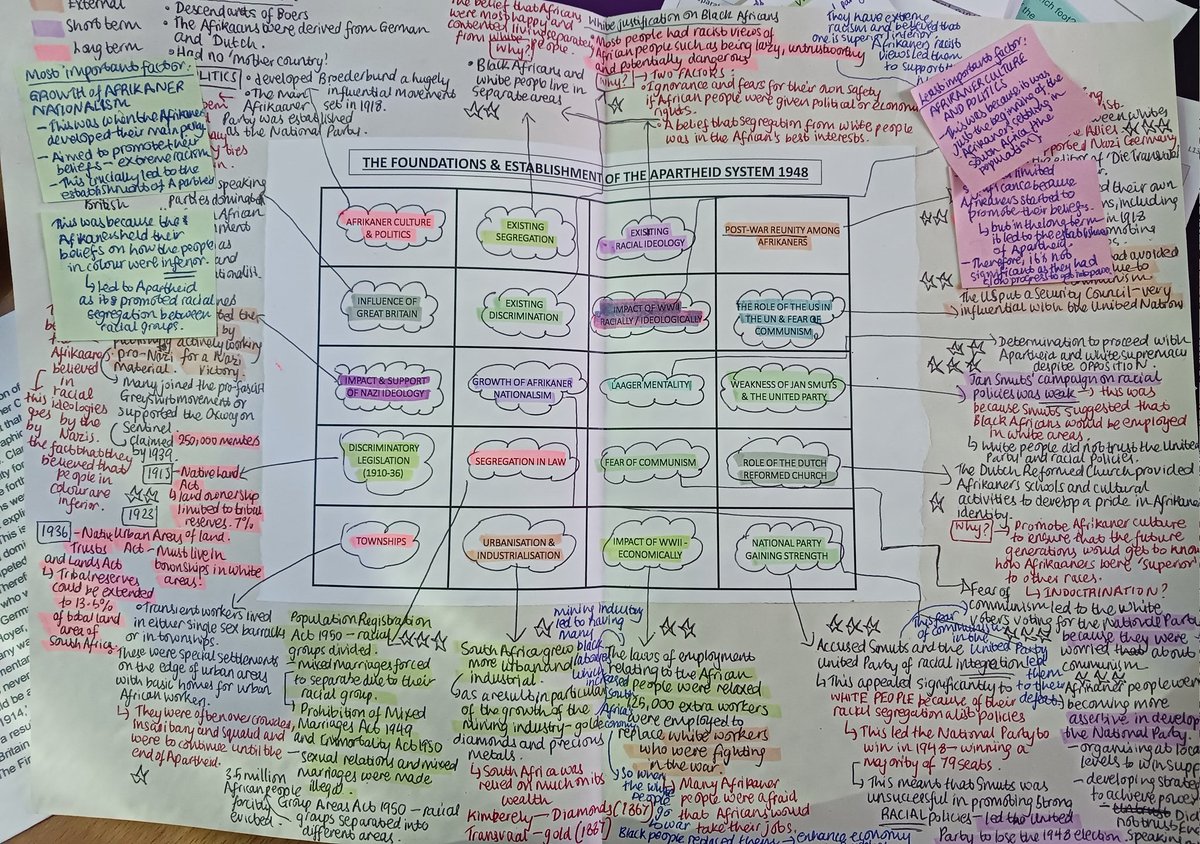 External
Short term
Long term
Most important factor:
GROWTH OF AFRIKANER
NATIONALISM
- This was when the Afrikaners
developed their main party.
- Aimed to promote their
beliefs - extreme racism
- This crucially led to the
establishment of Apartheid
This was because the
Afrikaners held their
beliefs on how the people
in colour were inferior.
↳ led to Apartheid
as it promoted racial
segregation between
racial groups.
• Descendants of Boers
• The Afrikaaners were derived from German
and Dutch.
• Had no 'mother country'.
POLITICS
• The main
Afrikaaner
Party was established
as the National Party.
• developed Broederbund a hugely
influential movement
set in 1918.
The belief that Africans
were most happy and
contented living separate
from white people.
Why?
• Black Africans and
white people live in
separate areas
White justification on Black Africans
• Most people had racist views of
African people such as being lazy, untrustworthy
and potentially dangerous
Why?
↳ TWO FACTORS:
• Ignorance and fears for their own safety
if African people were given political or economic
rights.
• A belief that segregation from white people
was in the African's best interests.
They have extreme
racism and believed that
one is superior/inferior
Afrikaner racist
views led them
to support
Least important factor:
AFRIKANER CULTURE
AND POLITICS
This was because it was
just the beginning of the
Afrikaner settling in
South Africa / the
population
limited
significance because
Afrikaners started to
promote their beliefs.
- but in the long term
it led to the establishment
of Apartheid.
- Therefore it's not
significant as they had
slow progress to get into power
THE FOUNDATIONS & ESTABLISHMENT OF THE APARTHEID SYSTEM 1948
AFRIKANER CULTURE
& POLITICS
EXISTING
SEGREGATION
EXISTING
RACIAL IDEOLOGY
POST-WAR REUNITY AMONG
AFRIKANERS
INFLUENCE OF
GREAT BRITAIN
EXISTING
DISCRIMINATION
IMPACT OF WWII
RACIALLY / IDEOLOGICALLY
THE ROLE OF THE US IN
THE UN & FEAR OF
COMMUNISM
IMPACT & SUPPORT
OF NAZI IDEOLOGY
GROWTH OF AFRIKANER
NATIONALSIM
LAAGER MENTALITY
WEAKNESS OF JAN SMUTS
& THE UNITED PARTY
DISCRIMINATORY
LEGISLATION
(1910-36)
SEGREGATION IN LAW
FEAR OF COMMUNISM
ROLE OF THE DUTCH
REFORMED CHURCH
TOWNSHIPS
URBANISATION &
INDUSTRIALISATION
IMPACT OF WWII -
ECONOMICALLY
NATIONAL PARTY
GAINING STRENGTH
British
speaking
actively working
pro-Nazi for a Nazi
material. victory.
↳ Many joined the pro-fascist
Greyshirt movement or
supported the Oxwagon
Sentinel.
↳ Claimed 250,000 members
by 1939.
Afrikaans
believed
in
racial
ideologies
this goes by the
by Nazis.
the fact that they
believed that
people in
colour are
inferior.
1913 - Native Land
Act
↳ land ownership
limited to tribal
reserves. 7%
of land.
1923
- Urban Areas
Act - Must live in
townships in white
areas!
1936 - Native
Trusts
and Lands Act
↳ Tribal reserves
could be extended
to 13.5%
of total land
area of
South Africa.
• Transient workers lived
in either single sex barracks
or in townships.
• These were special settlements
on the edge of urban areas
with basic homes for urban
African worker.
↳ They were often overcrowded,
insanitary and squalid and
were to continue until the
end of Apartheid.
Population Registration
Act 1950 - racial
groups divided.
- mixed marriages forced
to separate due to their
racial group.
↳ Prohibition of Mixed
Marriages Act 1949
and Immortality Act 1950
- sexual relations and mixed
marriages were made
illegal.
3.5 million
African people
forcibly
evicted.
Group Areas Act 1950 - racial
groups separated into
different areas.
South Africa grew
more urban and
industrial.
↳ as a result in particular
of the growth of the
mining industry - gold
diamonds and precious
metals.
↳ South Africa was
relied on much on its
wealth
Kimberely - Diamonds (1867)
Transvaal - gold (1867)
mining industry
led to having
many
black
labourers
which
increased
South
Africa's
economy
The laws of employment
relating to the African
people were relaxed
↳ 125,000 extra workers
were employed to
replace white workers
who were fighting
in the war.
↳ Many Afrikaner
people were afraid
that Africans would
take their jobs.
So when
the white
people
go
to war
Black people replaced them → enhance economy
Accused Smuts and the United Party
united Party of racial integration
↳ This appealed significantly to
WHITE PEOPLE because of their
racial segregationalist policies
↳ This led the National Party to
win in 1948 - winning a
majority of 79 seats.
↳ This means that Smuts was
unsuccessful in promoting strong
RACIAL policies - led the United
Party to lose the 1948 election.
This fear
of communism
in the
United Party
led
them
to their
defeat.
The US put a Security Council - very
influential with the United Nations
Determination to proceed with
Apartheid and white supremacy
despite opposition.
Jan Smuts' campaign on racial
policies was weak → this was
because Smuts suggested that
Black Africans would be employed
in white areas.
↳ White people did not trust the United
Party and racial policies.
The Dutch Reformed Church provided
Afrikaners schools and cultural
activities to develop a pride in Afrikaner
identity.
Why? → Promote Afrikaner culture
to ensure that the future
generations would get to know
how Afrikaaners were 'superior'
to other races.
↳ INDOCTRINATION?
Fear of
communism led to the white
voters voting for the National Party
because they were
worried about
communism
Afrikaner people were
becoming more
assertive in develop
the National Party.
- organising at local
levels to win support
- developing strategy
to achieve power